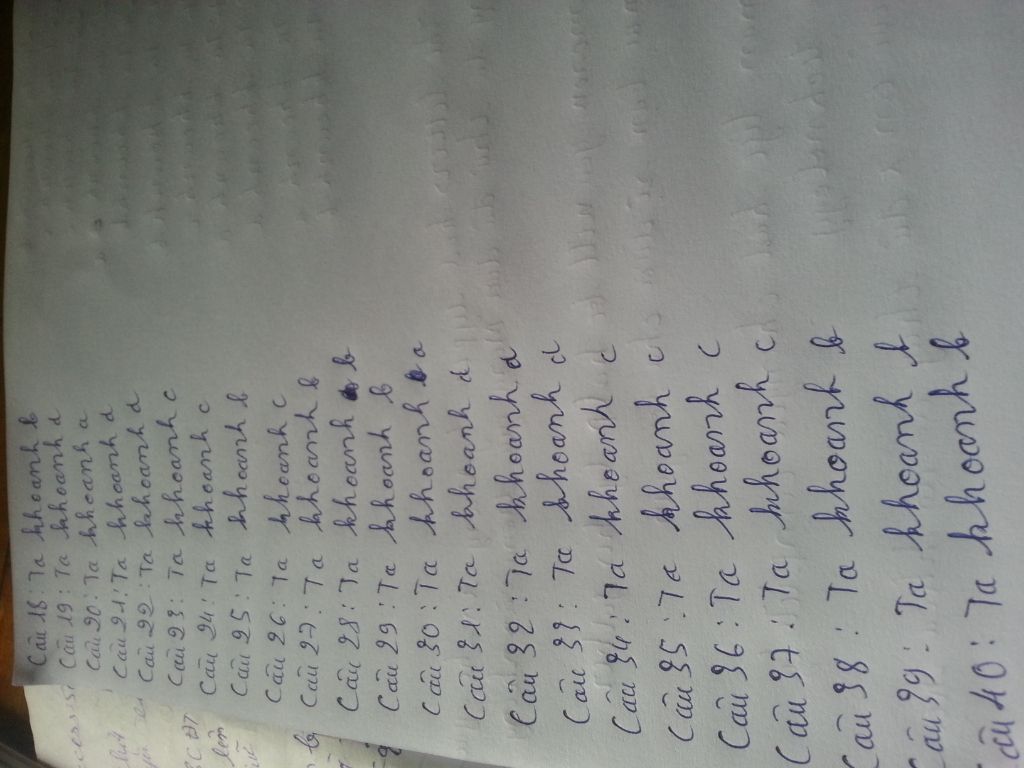 Câu 18: Ta khoanh b
Câu 19: Ta khoanh d
Câu 20: Ta khoanh a
Câu 21: Ta khoanh d
Câu 22: Ta khoanh d
Câu 23: Ta khoanh c
Câu 24: Ta khoanh c
Câu 25: Ta khoanh b
Câu 26: Ta khoanh c
Câu 27: Ta khoanh b
Câu 28: Ta khoanh b
Câu 29: Ta khoanh b
Câu 30: Ta khoanh a
Câu 31: Ta khoanh d
Câu 32: Ta khoanh d
Câu 33: Ta khoanh d
Câu 34: Ta khoanh c
Câu 35: Ta khoanh c
Câu 36: Ta khoanh c
Câu 37: Ta khoanh c
Câu 38: Ta khoanh b
Câu 39: Ta khoanh b
Câu 40: Ta khoanh b